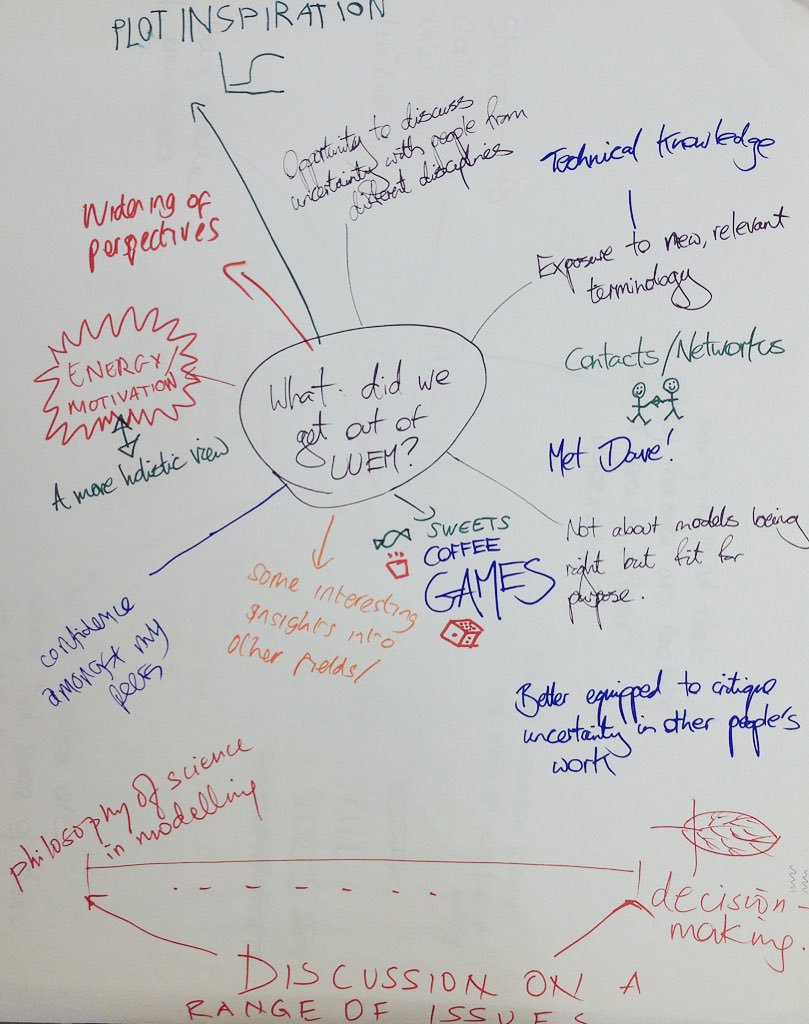 PLOT INSPIRATION
Opportunity to discuss
uncertainty with people from
different disciplines
Technical Knowledge
Widening of
perspectives
Exposure to new, relevant
terminology
ENERGY/
MOTIVATION
Contacts/Networks
What did we
get out of
UUEM?
A more holistic view
Met Dave!
SWEETS
COFFEE
GAMES
Not about models being
right but fit for
purpose.
Some interesting
insights into
other fields/
confidence
amongst my
peers
Better equipped to critique
uncertainty in other people's
work
philosophy of science
in modelling
decision-
making.
DISCUSSION ON A
RANGE OF ISSUES